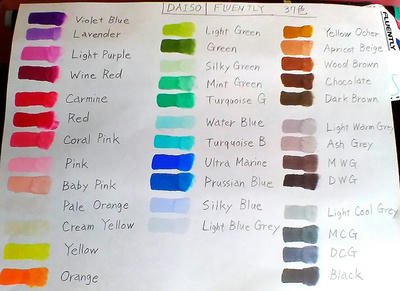 DAISO FLUENTLY 37色
Violet Blue
Lavender
Light Purple
Wine Red
Carmine
Red
Coral Pink
Pink
Baby Pink
Pale Orange
Cream Yellow
Yellow
Orange
Light Green
Green
Silky Green
Mint Green
Turquoise G
Water Blue
Turquoise B
Ultra Marine
Prussian Blue
Silky Blue
Light Blue Grey
Yellow Ocher
Apricot Beige
Wood Brown
Chocolate
Dark Brown
Light Warm Grey
Ash Grey
MWG
DWG
Light Cool Grey
MCG
DCG
Black
FLUENTLY